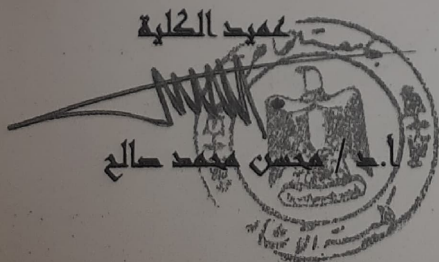 عميد الكلية
أ.د / محسن محمد صالح